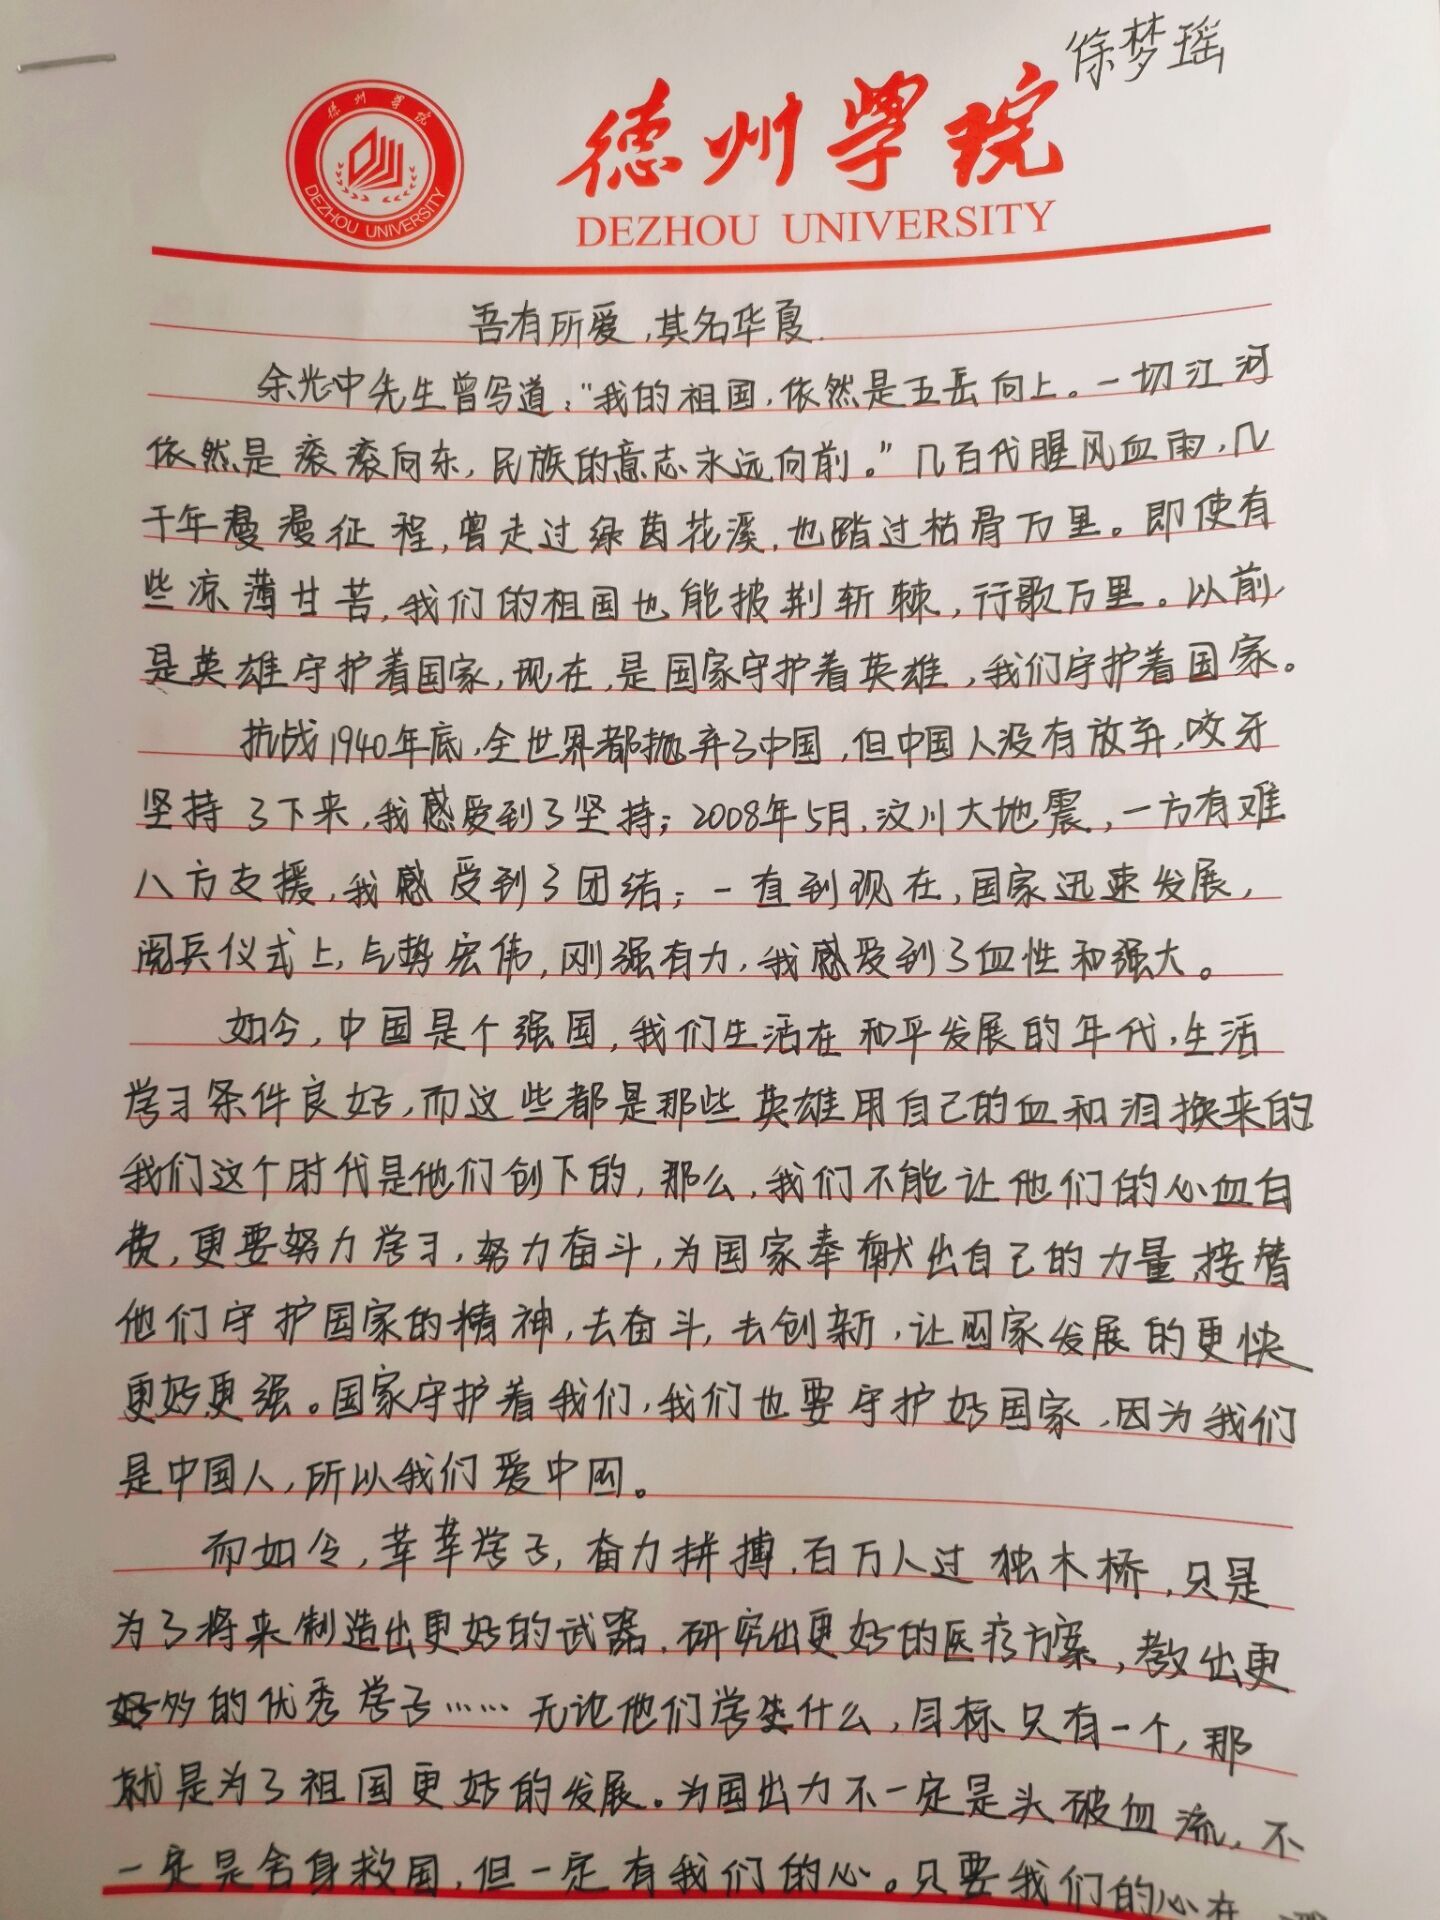 徐梦瑶
德州学院
DEZHOU UNIVERSITY
德州学院
DEZHOU UNIVERSITY
吾有所爱,其名华夏.
余光中先生曾写道:"我的祖国,依然是五岳向上。一切江河
依然是滚滚向东,民族的意志永远向前。"几百代腥风血雨,几
千年漫漫征程,曾走过绿茵花溪,也踏过枯骨万里。即使有
些凉薄甘苦,我们的祖国也能披荆斩棘,行歌万里。以前,
是英雄守护着国家,现在,是国家守护着英雄,我们守护着国家。
抗战1940年底,全世界都抛弃了中国,但中国人没有放弃,咬牙
坚持了下来,我感受到了坚持;2008年5月,汶川大地震,一方有难
八方支援,我感受到了团结;一直到现在,国家迅速发展,
阅兵仪式上,气势宏伟,刚强有力,我感受到了血性和强大。
如今,中国是个强国,我们生活在和平发展的年代,生活
学习条件良好,而这些都是那些英雄用自己的血和泪换来的
我们这个时代是他们创下的,那么,我们不能让他们的心血白
费,更要努力学习,努力奋斗,为国家奉献出自己的力量,接替
他们守护国家的精神,去奋斗,去创新,让国家发展的更快
更好更强。国家守护着我们,我们也要守护好国家,因为我们
是中国人,所以我们爱中国。
而如今,莘莘学子,奋力拼搏,百万人过独木桥,只是
为了将来制造出更好的武器,研究出更好的医疗方案,教出更
多的优秀学子……无论他们学什么,目标只有一个,那
就是为了祖国更好的发展。为国出力不一定是头破血流,不
一定是舍身救国,但一定有我们的心。只要我们的心在